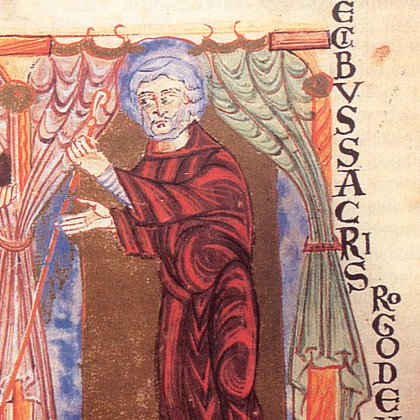 ECIBVSSACRIS
RoGODE